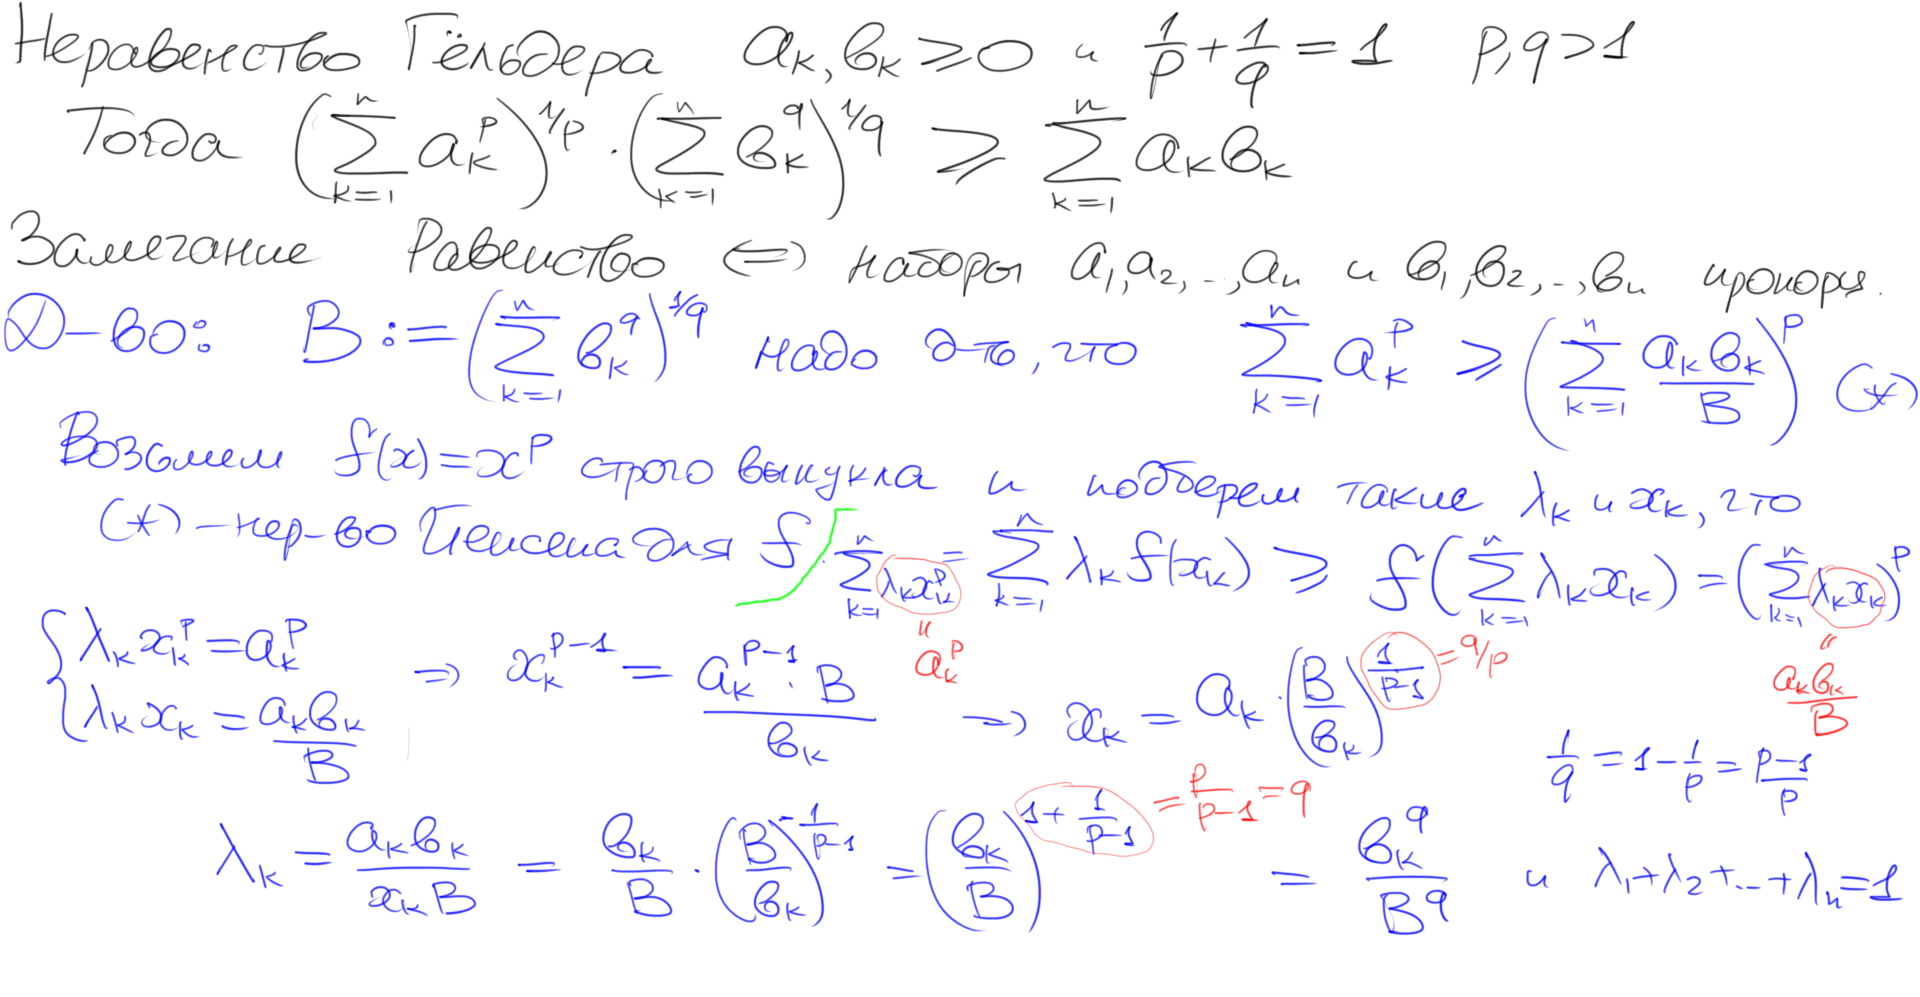 Неравенство Гёльдера aₖ, bₖ ⩾ 0 и 1/p + 1/q = 1 p, q > 1
Тогда (∑ₖ₌₁ⁿ aₖᵖ)^{1/p} · (∑ₖ₌₁ⁿ bₖ^q)^{1/q} ⩾ ∑ₖ₌₁ⁿ aₖbₖ
Замечание Равенство ⇔ наборы a₁, a₂, .., aₙ и b₁, b₂, .., bₙ пропорц.
Д-во: B := (∑ₖ₌₁ⁿ bₖ^q)^{1/q} надо д-ть, что ∑ₖ₌₁ⁿ aₖᵖ ⩾ (∑ₖ₌₁ⁿ aₖbₖ/B)ᵖ (*)
Возьмем f(x) = xᵖ строго выпукла и подберем такие λₖ и xₖ, что
(*) - нер-во Йенсена для f. ∑ₖ₌₁ⁿ λₖxₖᵖ = ∑ₖ₌₁ⁿ λₖf(xₖ) ⩾ f(∑ₖ₌₁ⁿ λₖxₖ) = (∑ₖ₌₁ⁿ λₖxₖ)ᵖ
" aₖᵖ " aₖbₖ/B
{ λₖxₖᵖ = aₖᵖ
λₖxₖ = aₖbₖ/B ⇒ xₖ^{p-1} = aₖ^{p-1} · B / bₖ ⇒ xₖ = aₖ · (B/bₖ)^{1/(p-1)} = q/p
1/q = 1 - 1/p = (p-1)/p
λₖ = aₖbₖ/(xₖB) = bₖ/B · (B/bₖ)^{-1/(p-1)} = (bₖ/B)^{1 + 1/(p-1)} = p/(p-1) = q = bₖ^q/B^q и λ₁+λ₂+...+λₙ=1